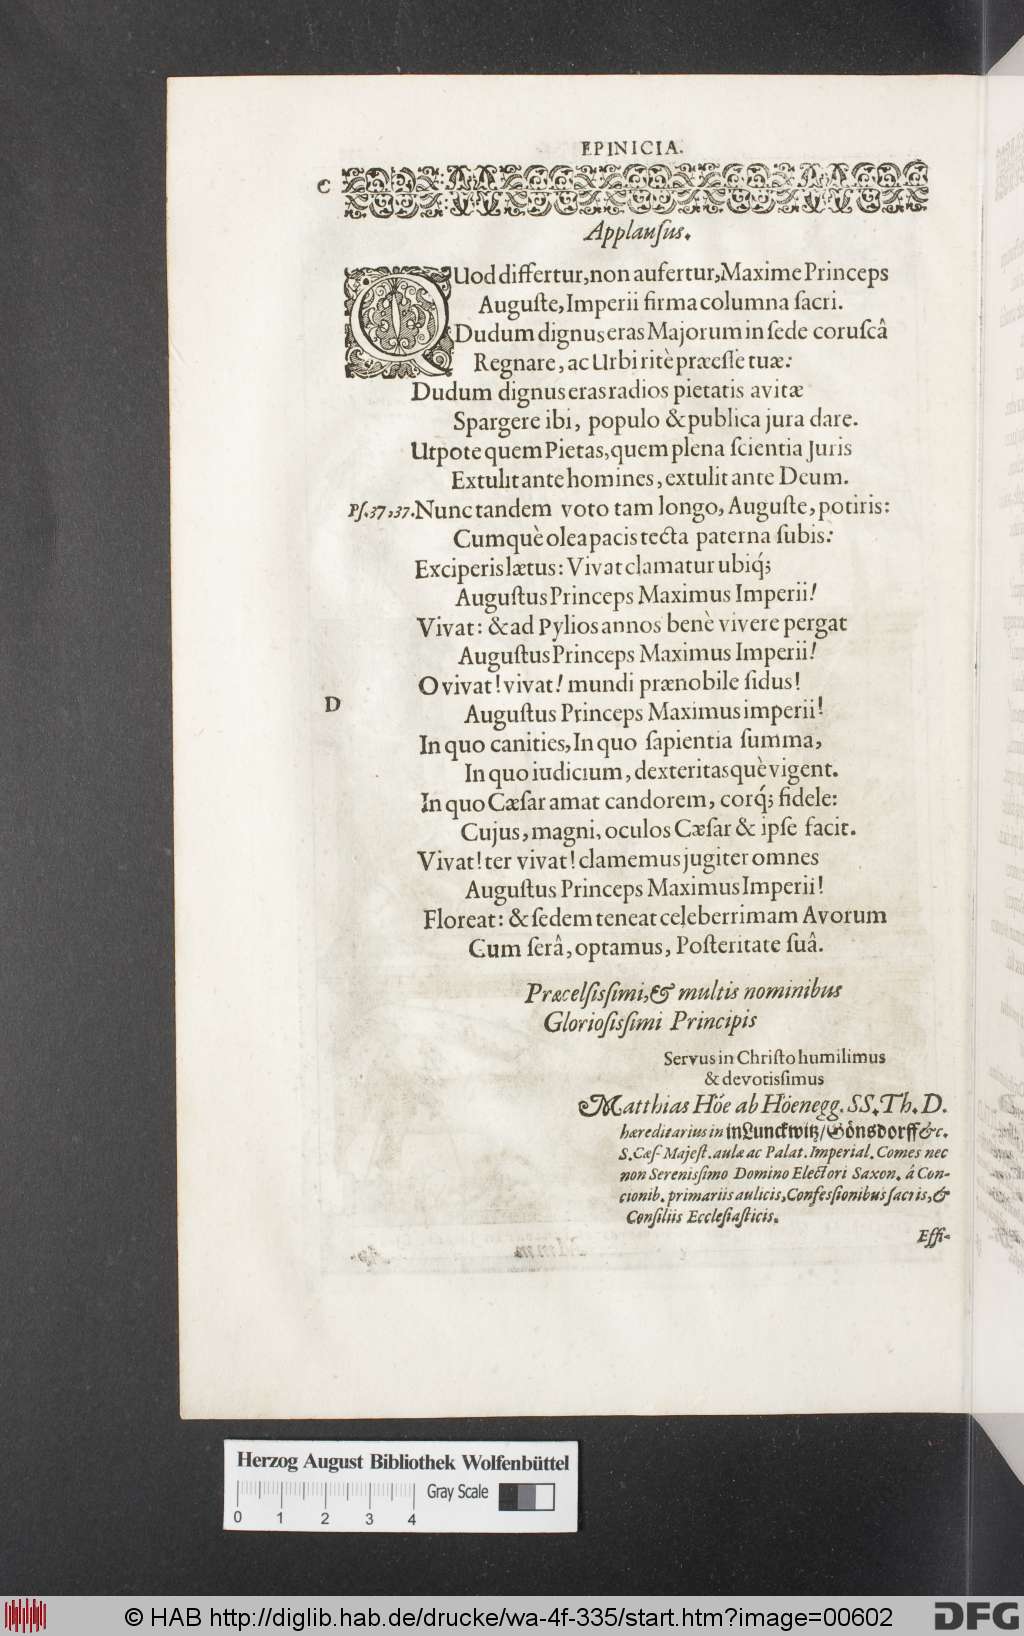 EPINICIA.
C
Applauſus.
QUod differtur, non aufertur, Maxime Princeps
Auguſte, Imperii firma columna ſacri.
Dudum dignus eras Majorum in ſede coruſcâ
Regnare, ac Urbi ritè præeſſe tuæ:
Dudum dignus eras radios pietatis avitæ
Spargere ibi, populo & publica jura dare.
Utpote quem Pietas, quem plena ſcientia Juris
Extulit ante homines, extulit ante Deum.
Pſ.37,37. Nunc tandem voto tam longo, Auguſte, potiris:
Cumquè olea pacis tecta paterna ſubis:
Exciperis lætus: Vivat clamatur ubiq́;
Auguſtus Princeps Maximus Imperii!
Vivat: & ad Pylios annos benè vivere pergat
Auguſtus Princeps Maximus Imperii!
O vivat! vivat! mundi prænobile ſidus!
D
Auguſtus Princeps Maximus imperii!
In quo canities, In quo ſapientia ſumma,
In quo iudicium, dexteritasquè vigent.
In quo Cæſar amat candorem, corq́; fidele:
Cujus, magni, oculos Cæſar & ipſe facit.
Vivat! ter vivat! clamemus jugiter omnes
Auguſtus Princeps Maximus Imperii!
Floreat: & ſedem teneat celeberrimam Avorum
Cum ſerâ, optamus, Poſteritate ſuâ.
Præcelſisſimi, & multis nominibus
Glorioſisſimi Principis
Servus in Chriſto humilimus
& devotisſimus
Matthias Höe ab Höenegg. SS. Th. D.
hæreditarius in in Lunckwitz/ Gönsdorff &c.
S. Cæſ. Majeſt. aulæ ac Palat. Imperial. Comes nec
non Sereniſſimo Domino Electori Saxon. á Con-
cionib. primariis aulicis, Confeſſionibus ſacris, &
Conſiliis Eccleſiaſticis.
Effi-
Herzog August Bibliothek Wolfenbüttel
Gray Scale
0 1 2 3 4
© HAB http://diglib.hab.de/drucke/wa-4f-335/start.htm?image=00602
DFG